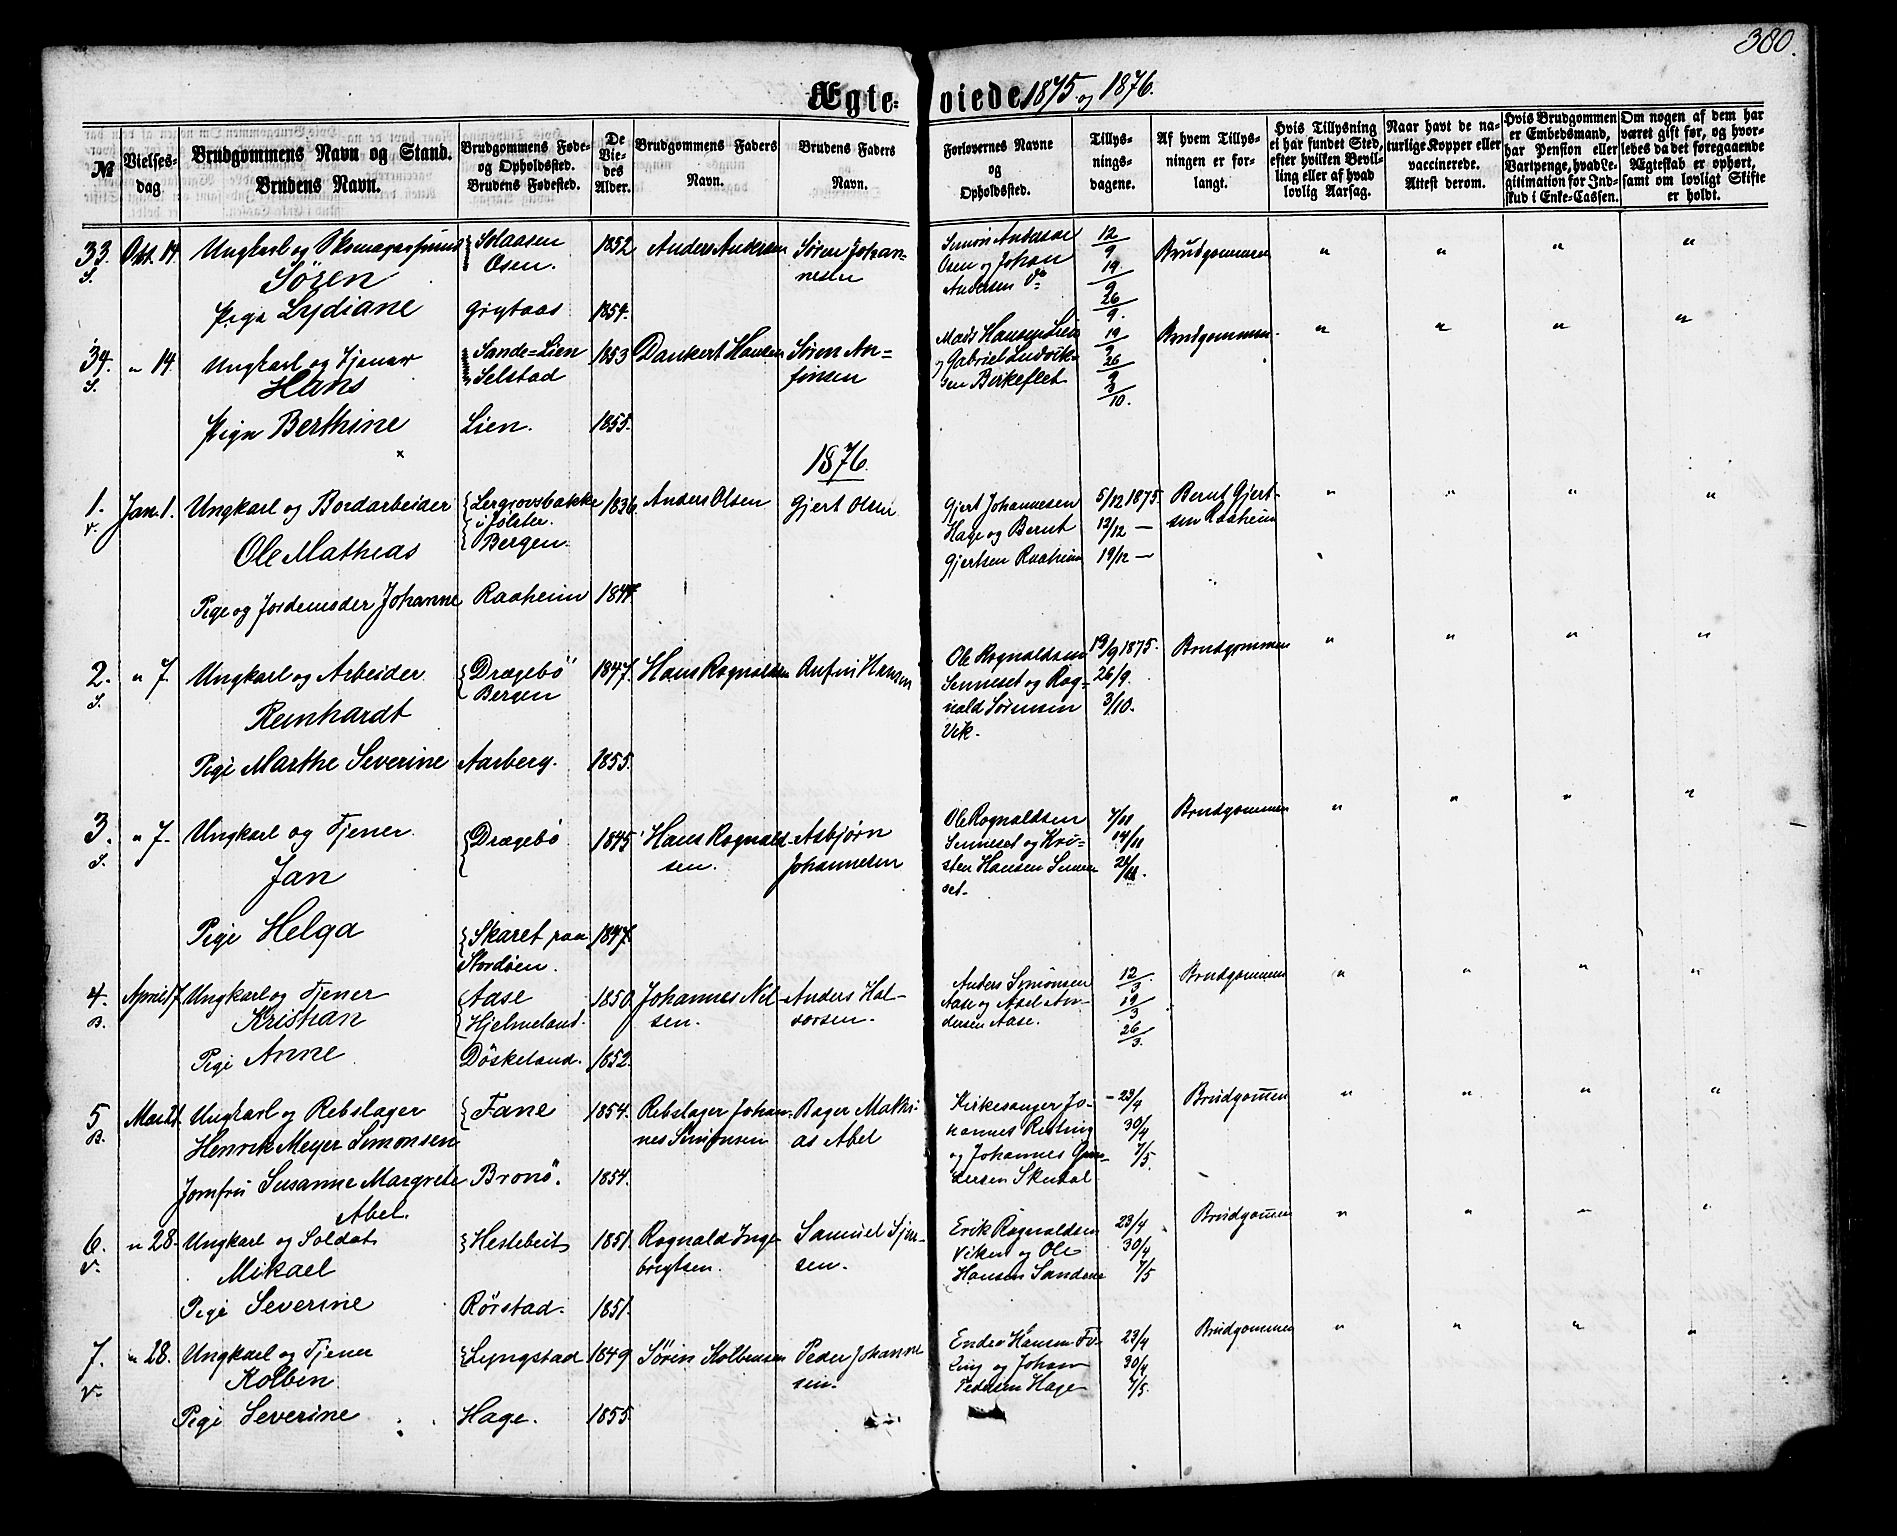 380.
Ægte= viede 1875 og 1876.
№
Vielses-
dag
Brudgommens Navn og Stand.
Brudens Navn.
Brudgommens Føde-
og Opholdssted.
Brudens Fødested.
De
Vie-
des
Alder.
Brudgommens Faders
Navn.
Brudens Faders
Navn.
Forlovernes Navne
og
Opholdssted.
Tillys-
nings-
dagene.
Af hvem Tillys-
ningen er for-
langt.
Hvis Tillysning
ei har fundet Sted,
efter hvilken Bevil-
ling eller af hvad
lovlig Aarsag.
Naar havt de na-
turlige Kopper eller
vaccinerede.
Attest derom.
Hvis Brudgommen
er Embedsmand,
har Pension eller
Vartpenge, hvad Le-
gitimation for Ind-
skud i Enke-Cassen.
Om nogen af dem har
været gift før, og hvor-
ledes da det foregaaende
Ægteskab er ophørt,
samt om lovligt Skifte
er holdt.
33. S. Okt. 14. Ungkarl og
Sören
Osen.
1852 Anders Andersen
Søren Johan-
nesen
Simon Andersen
Osen og Johan
Andersen do
12/9
19/9
26/9.
Brudgommen " " " "
Pige Lydiane Grytaas 1854.
34. S. " 14. Ungkarl og Tjener
Hans
Sande=Lien
Selstad
1853 Dankert Hansen
Søren An=
finsen
Mads Hansen Lien
og Gabriel Ludvik-
sen Birkeflet
19/9
26/9
3/10.
Brudgommen. " " " "
Pige Berthine Lien. 1855.
1876.
1. v. Jan. 1. Ungkarl og Bordarbeider
Ole Mathias
Lergrovsbakke
i Jølster.
Bergen.
1836. Anders Olsen Gjert Olsen
Gjert Johannesen
Hage og Bernt
Gjertsen Raaheim
5/12 1875.
12/12 —
19/12 —
Bernt Gjert-
sen Raaheim
" " " "
Pige og Jordemoder Johanne Raaheim 1847.
2. S. " 7. Ungkarl og Arbeider
Reinhardt
Drægebö
Bergen
1847. Hans Rognaldsen Anfin Hansen
Ole Rognaldsen
Senneset og Rog-
nald Sørensen
Vik.
19/9 1875.
26/9.
3/10.
Brudgommen " " " "
Pige Marthe Severine Aarberg. 1855.
3. S. " 7. Ungkarl og Tjener.
Jan
Drægebö 1845 Hans Rognald-
sen.
Asbjørn
Johannesen
Ole Rognaldsen
Senneset og Kri-
sten Hansen Senne
set.
7/11
14/11
21/11.
Brudgommen " " " "
Pige Helga Skaret paa
Stordöen.
1847.
4. B. April 17 Ungkarl og Tjener
Kristian
Aase
Hjelmeland.
1850. Johannes Nil-
sen.
Anders Hal-
vorsen.
Anders Simonsen
Aase og Axel An-
dersen Aase.
12/3.
19/3
26/3.
Brudgommen " " " "
Pige Anne Döskeland. 1852.
5 B. Mai 21. Ungkarl og Rebslager
Henrik Meyer Simonsen
Fane 1854. Rebslager Johan-
nes Simonsen
Bager Mathi-
as Abel
Kirkesanger Jo-
hannes
og Johannes Gun-
dersen Skudal
23/4
30/4
7/5.
Brudgommen " " " "
Jomfru Susanne Margrete Bronö. 1854.
Abel.
6. v. " 28. Ungkarl og Soldat
Mikael
Hestebeit 1851. Rognald Inge-
brigtsen.
Samuel
sen.
Erik Rognaldsen
Viken og Ole
Hansen Sandnes
23/4
30/4
7/5
Brudgommen " " " "
Pige Severine Rörstad. 1851.
7. v. " 28. Ungkarl og Tjener
Kolben
Lyngstad 1849 Sören Kolbensen Peder Johanne
sen.
Endre Hansen Fu-
ling og Johan
Pedersen Hage
23/4
30/4
7/5.
Brudgommen " " " "
Pige Severine Hage. 1855.